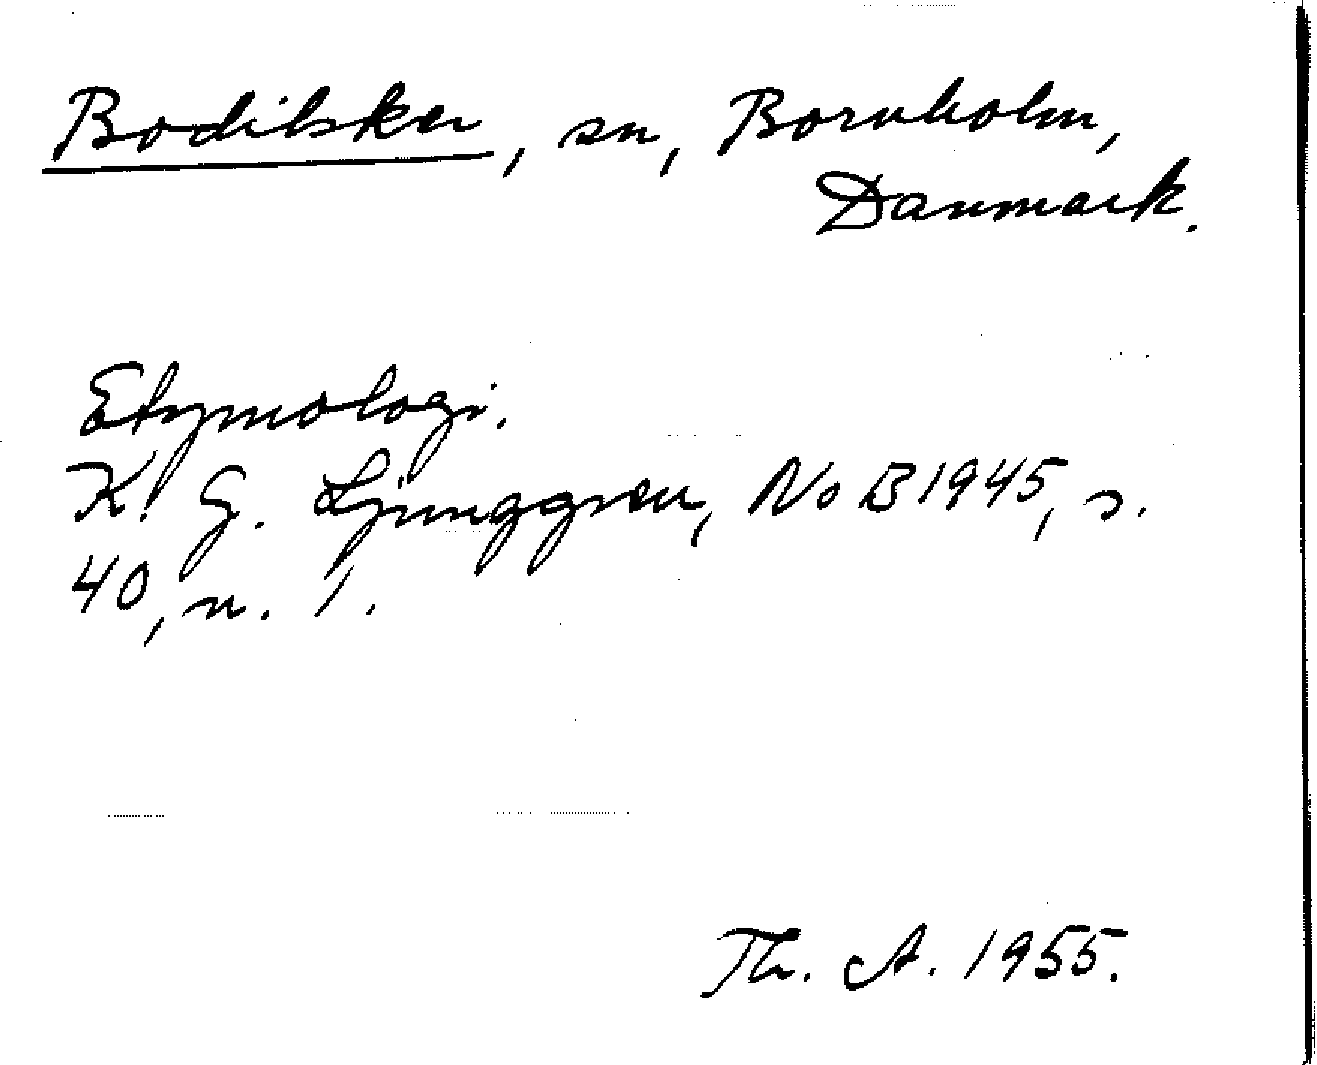 Bodilsker, sn, Bornholm,
Danmark.
Etymologi.
K. G. Ljunggren, NoB 1945, s.
40, n. 1.
Th. A. 1955.